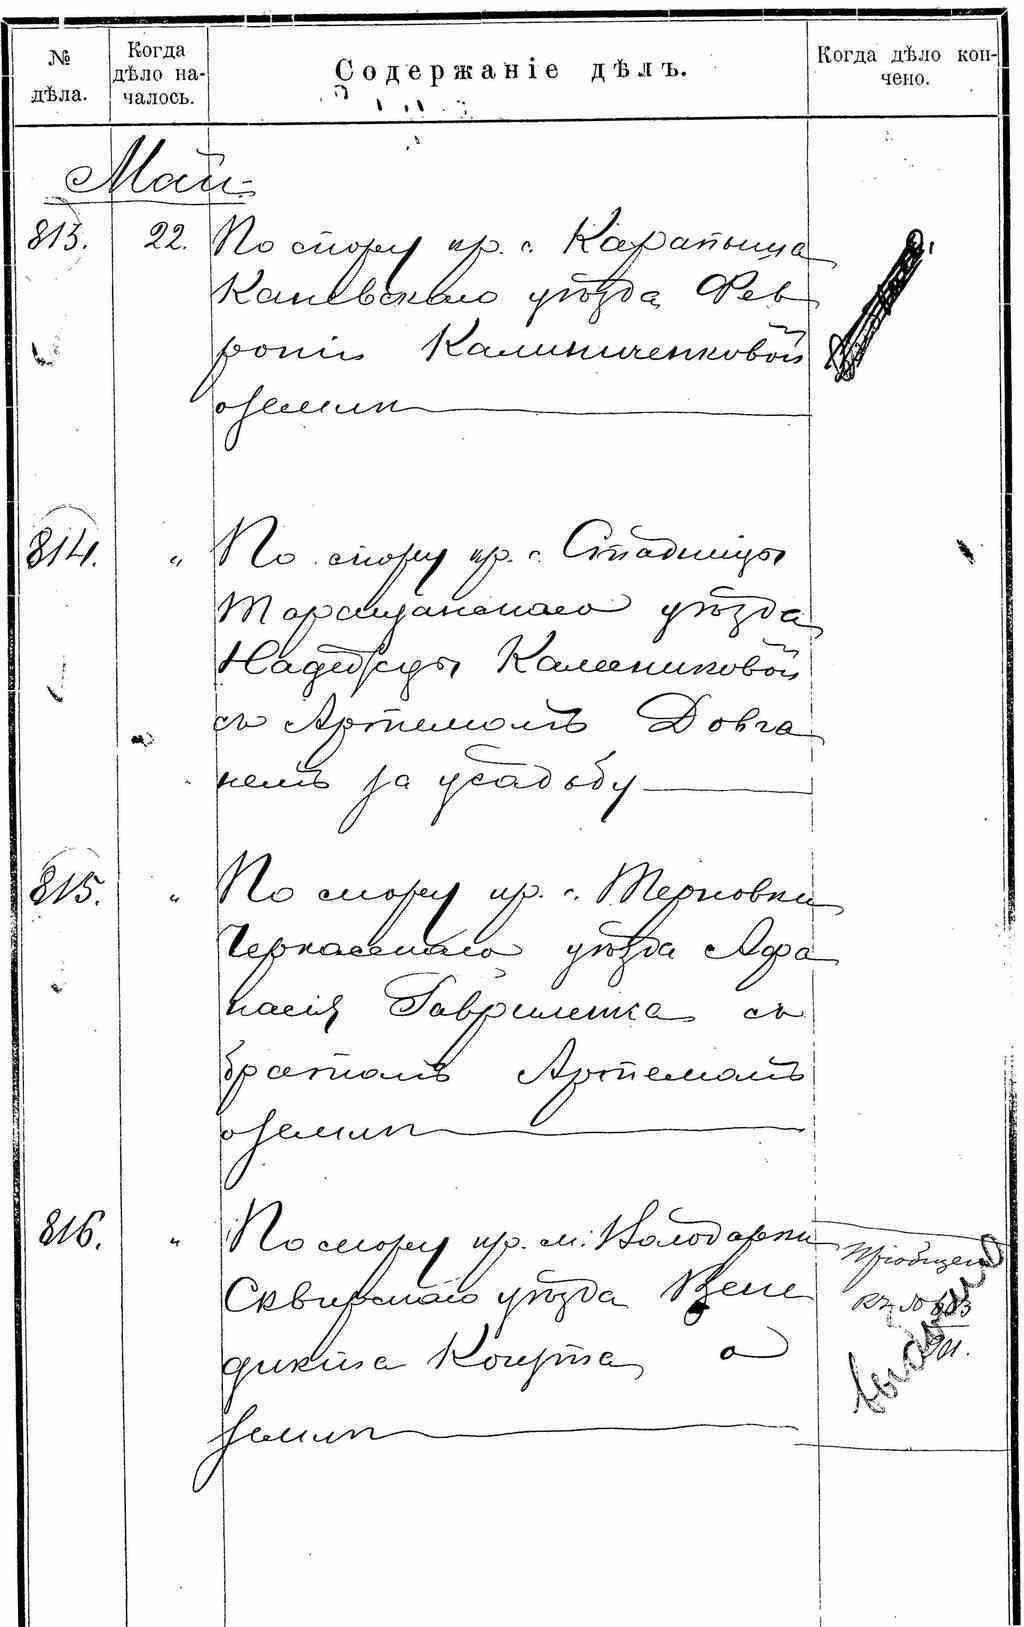 № дѣла.
Когда дѣло на-
чалось.
Содержаніе дѣлъ.
Когда дѣло кон-
чено.
Май.
813. 22. По спору кр. с. Карапыша
Каневскаго уѣзда Фев
роніи Калиниченковой
о землѣ
814. " По спору кр. с. Стадницы
Таращанскаго уѣзда
Надежды Калениковой
съ Артемомъ Довга
немъ за усадьбу
815. " По спору кр. с. Терновки
Черкасскаго уѣзда Афа
насія Гавриленка съ
братомъ Артемомъ
о землѣ
816. " По спору кр. м. Володарки
Сквирскаго уѣзда Вене
дикта Когута о
землѣ
Пріобщено
къ №